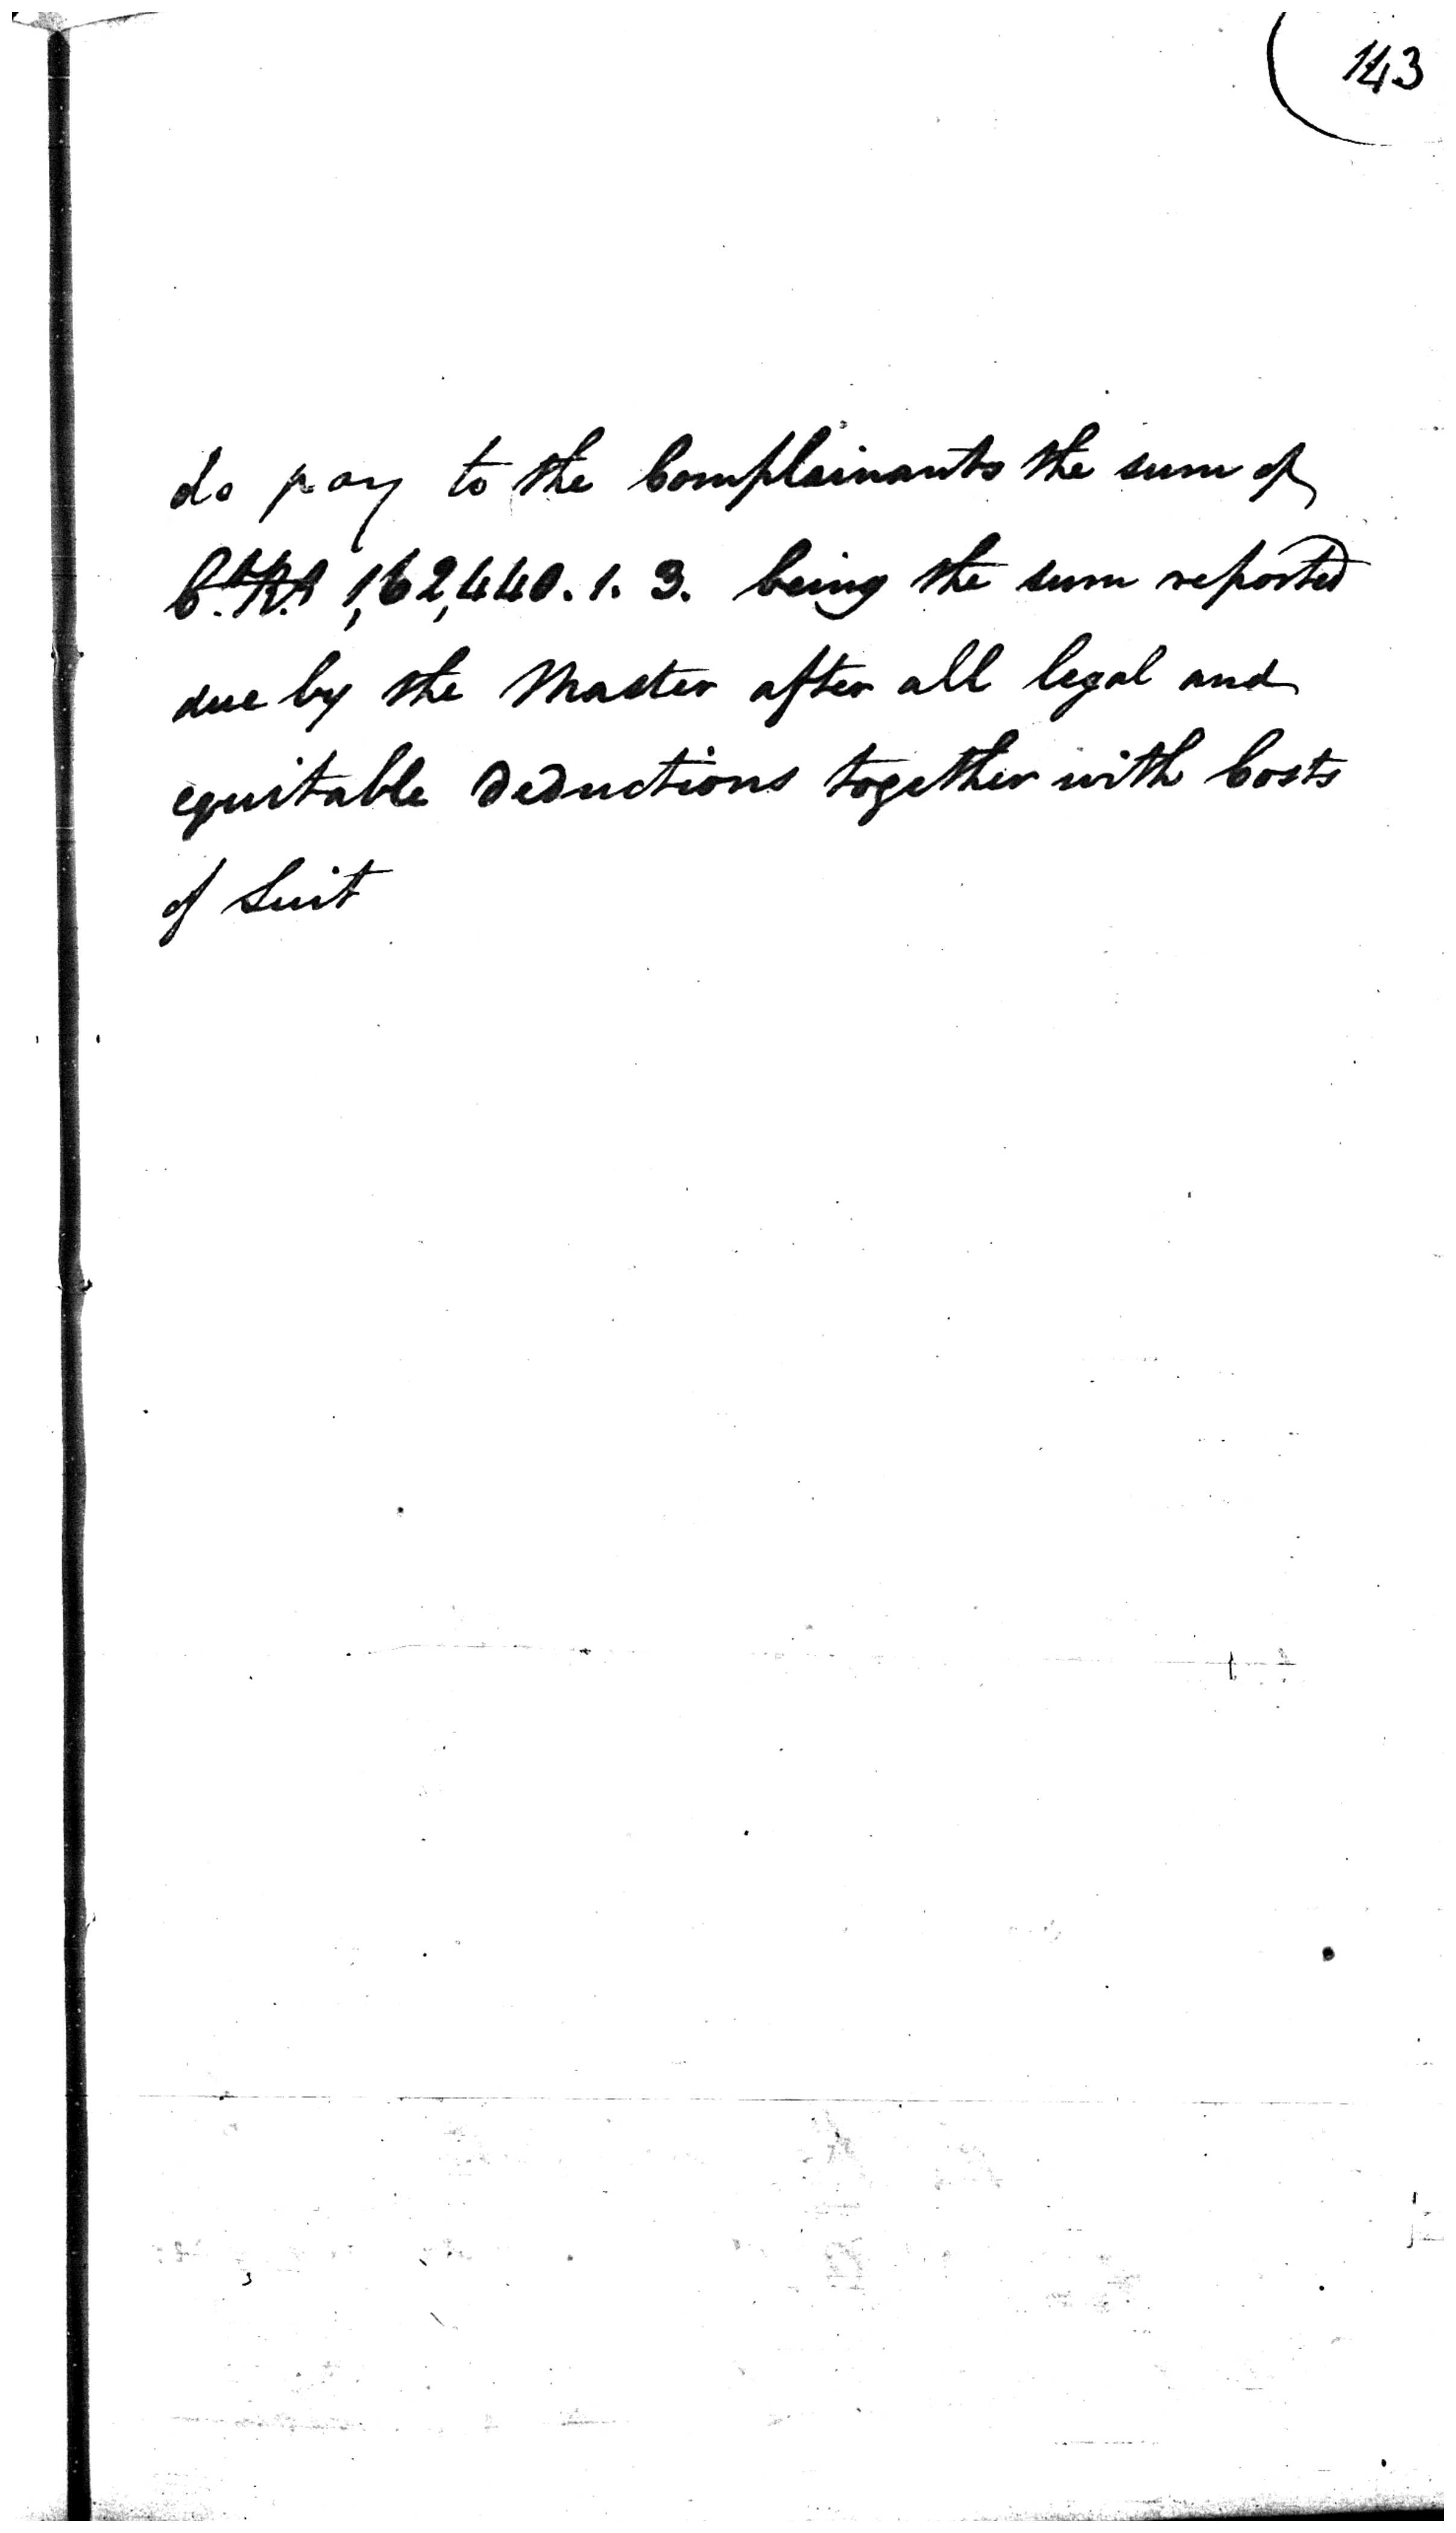 143
do pay to the Complainants the sum of
C. Rs 1,62,440. 1. 3. being the sum reported
due by the Master after all legal and
equitable deductions together with Costs
of Suit